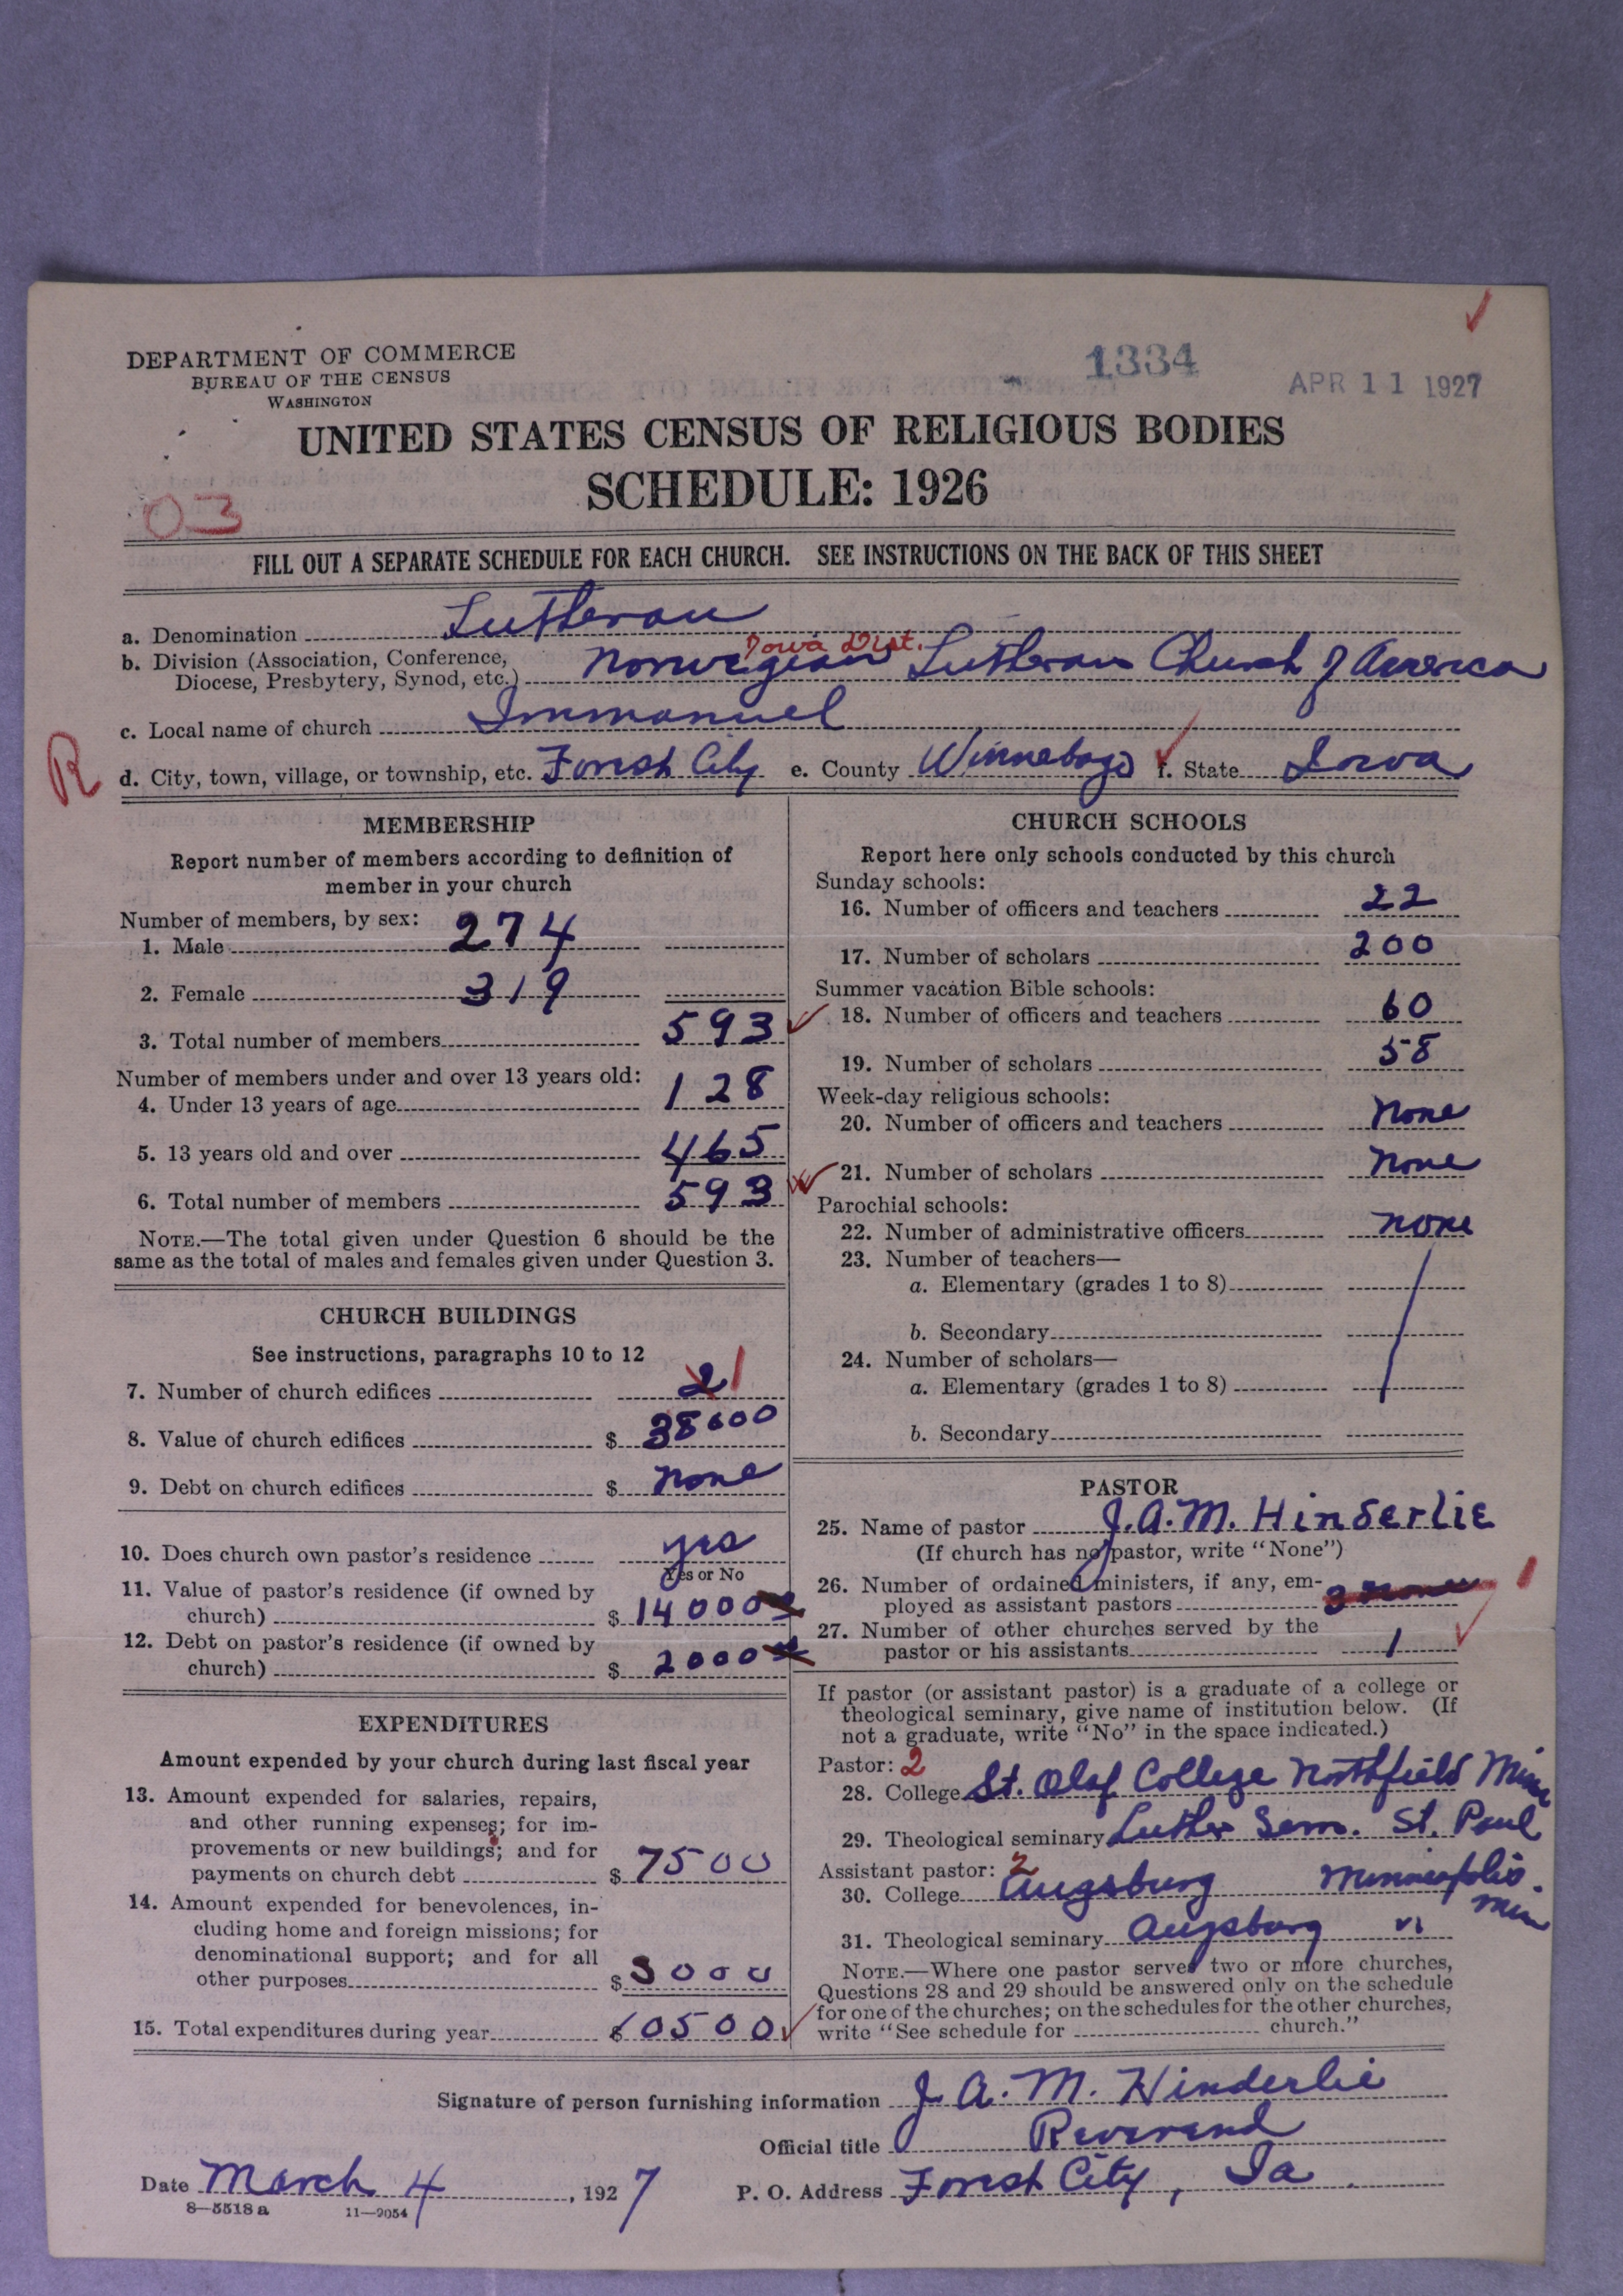 DEPARTMENT OF COMMERCE
BUREAU OF THE CENSUS
WASHINGTON
1334
APR 11 1927
UNITED STATES CENSUS OF RELIGIOUS BODIES
SCHEDULE: 1926
03
FILL OUT A SEPARATE SCHEDULE FOR EACH CHURCH. SEE INSTRUCTIONS ON THE BACK OF THIS SHEET
a. Denomination Lutheran
Iowa Dist.
b. Division (Association, Conference, Diocese, Presbytery, Synod, etc.) Norwegian Lutheran Church of America
c. Local name of church Immanuel
R
d. City, town, village, or township, etc. Forest City e. County Winnebago f. State Iowa
MEMBERSHIP
Report number of members according to definition of
member in your church
Number of members, by sex:
1. Male 274
2. Female 319
3. Total number of members 593
Number of members under and over 13 years old:
4. Under 13 years of age 128
5. 13 years old and over 465
6. Total number of members 593
NOTE.—The total given under Question 6 should be the
same as the total of males and females given under Question 3.
CHURCH BUILDINGS
See instructions, paragraphs 10 to 12
7. Number of church edifices 2 1
8. Value of church edifices $ 38000
9. Debt on church edifices $ None
10. Does church own pastor's residence yes
Yes or No
11. Value of pastor's residence (if owned by
church) $ 14000
12. Debt on pastor's residence (if owned by
church) $ 2000
EXPENDITURES
Amount expended by your church during last fiscal year
13. Amount expended for salaries, repairs,
and other running expenses; for im-
provements or new buildings; and for
payments on church debt $ 7500
14. Amount expended for benevolences, in-
cluding home and foreign missions; for
denominational support; and for all
other purposes $ 3000
15. Total expenditures during year $ 10500
CHURCH SCHOOLS
Report here only schools conducted by this church
Sunday schools:
16. Number of officers and teachers 22
17. Number of scholars 200
Summer vacation Bible schools:
18. Number of officers and teachers 60
19. Number of scholars 58
Week-day religious schools:
20. Number of officers and teachers None
21. Number of scholars None
Parochial schools:
22. Number of administrative officers none
23. Number of teachers—
a. Elementary (grades 1 to 8)
b. Secondary
24. Number of scholars—
a. Elementary (grades 1 to 8)
b. Secondary
PASTOR
25. Name of pastor J.A.M. Hinderlie
(If church has no pastor, write "None")
26. Number of ordained ministers, if any, em-
ployed as assistant pastors 1
27. Number of other churches served by the
pastor or his assistants 1
If pastor (or assistant pastor) is a graduate of a college or
theological seminary, give name of institution below. (If
not a graduate, write "No" in the space indicated.)
Pastor: 2
28. College St. Olaf College Northfield Minn
29. Theological seminary Luther Sem. St. Paul
Assistant pastor: 2
30. College Augsburg Minneapolis Min
31. Theological seminary Augsburg "
NOTE.—Where one pastor serves two or more churches,
Questions 28 and 29 should be answered only on the schedule
for one of the churches; on the schedules for the other churches,
write "See schedule for church."
Signature of person furnishing information J. A. M. Hinderlie
Official title Reverend
Date March 4, 1927
P. O. Address Forest City, Ia.
8—5518 a 11—9054